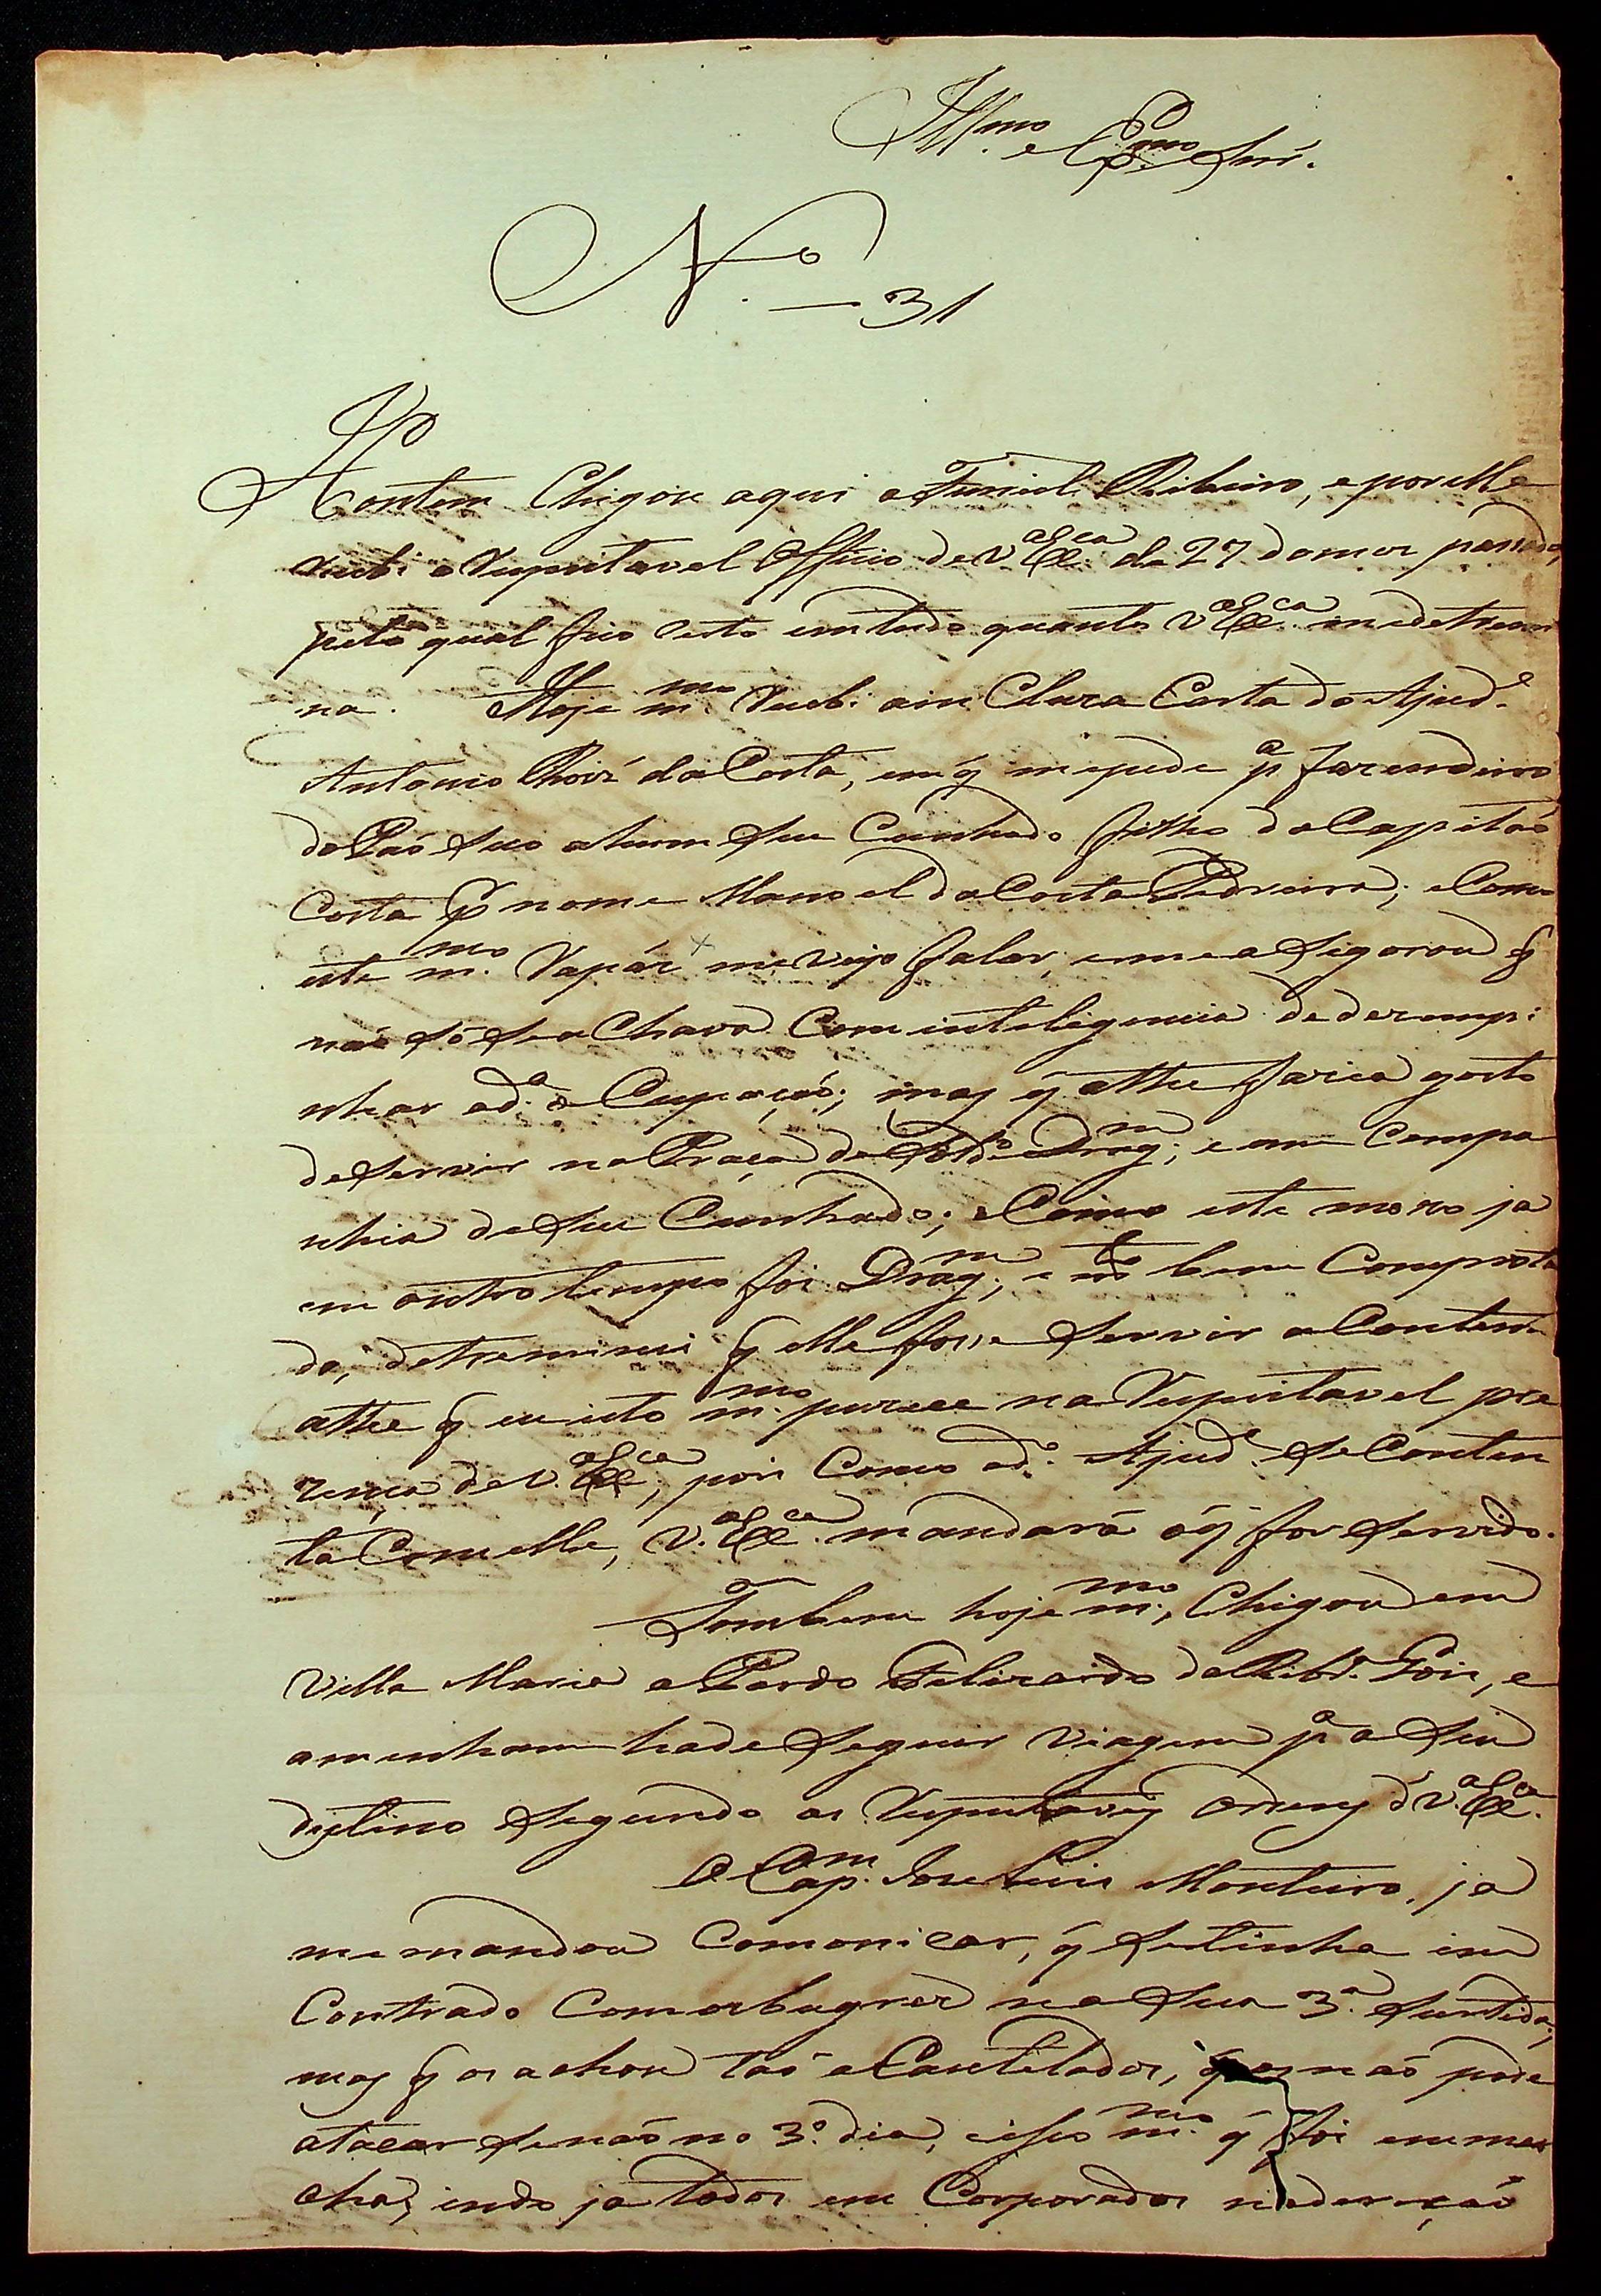 Ill.mo e Ex.mo Snr.
N.o — 31
Hontem Chigou aqui o Furriel Ribeiro, e por elle
recebi o Respeitavel Officio de V Ex.ca de 27 do mez passado,
pelo qual fico serto em tudo quanto V Ex.ca me detremi
na. Hoje m.mo Recebi ain Cluza Carta do Ajud.e
Antonio da Costa, em q̃ me pede p.a fazendeiro
do Páo Seco a hum Seu Cunhado filho do Capitaó
Costa p̃ nome Manoel da Costa Pedreira; e Como
este m.mo Rapáz me veyo falar, e me a Segorou q̃
naó Só Se a Chava Com inteligencia de dezempi
nhar a d.a o Cupaçaó; mas q̃ athe faria gosto
de Servir na Praça de Sold.o Drag.m; e em Compa
nhia de Seu Cunhado; e Como este moso ja
em outro tempo foi Drag.m, e m.to bem Comporta
do, detreminei q̃ elle fose Servir a Contente
athe q̃ eu isto m.mo puzece na Respeitavel pre
zença de V. Ex.ca, pois Como o d.o Ajud.e Se Conten
ta Com elle, V. Ex.ca mandará o q̃ for Servido.
Tombem hoje m.mo, Chigou em
Villa Maria o Pardo Felizardo de Gois, e
amenham hade Seguir Viagem p.a o Seu
destino Segundo as Respeitaveis Ordens d V. Ex.ca
O Cap.m Joze Luis Monteiro, ja
me mandou Comonicar, q̃ Se tinha em
Contrado Com os bugres na Sua 3.a Surtida,
mas q̃ os achou taó a Cautelados, q̃ os naó pode
atacar Senaó no 3.o dia, e iso m.mo q̃ foi em mar
cha, indo ja todos em Corporados na dereçaó